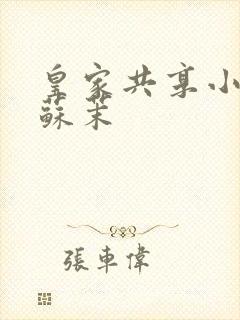 皇家共享小
蘇茉
張車偉